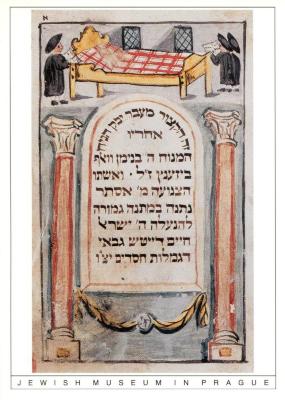 א
זה הקצור מעבר יבק הניח
אחריו
המנוח ה' בנימן וואלף
ביזענץ ז"ל · ואשתו
הצנועה מ' אסתר
נתנה במתנה גמורה
להנעלה ה' ישראל
חיים דייטש גבאי
דגמלות חסדים יצ"ו
JEWISH MUSEUM IN PRAGUE